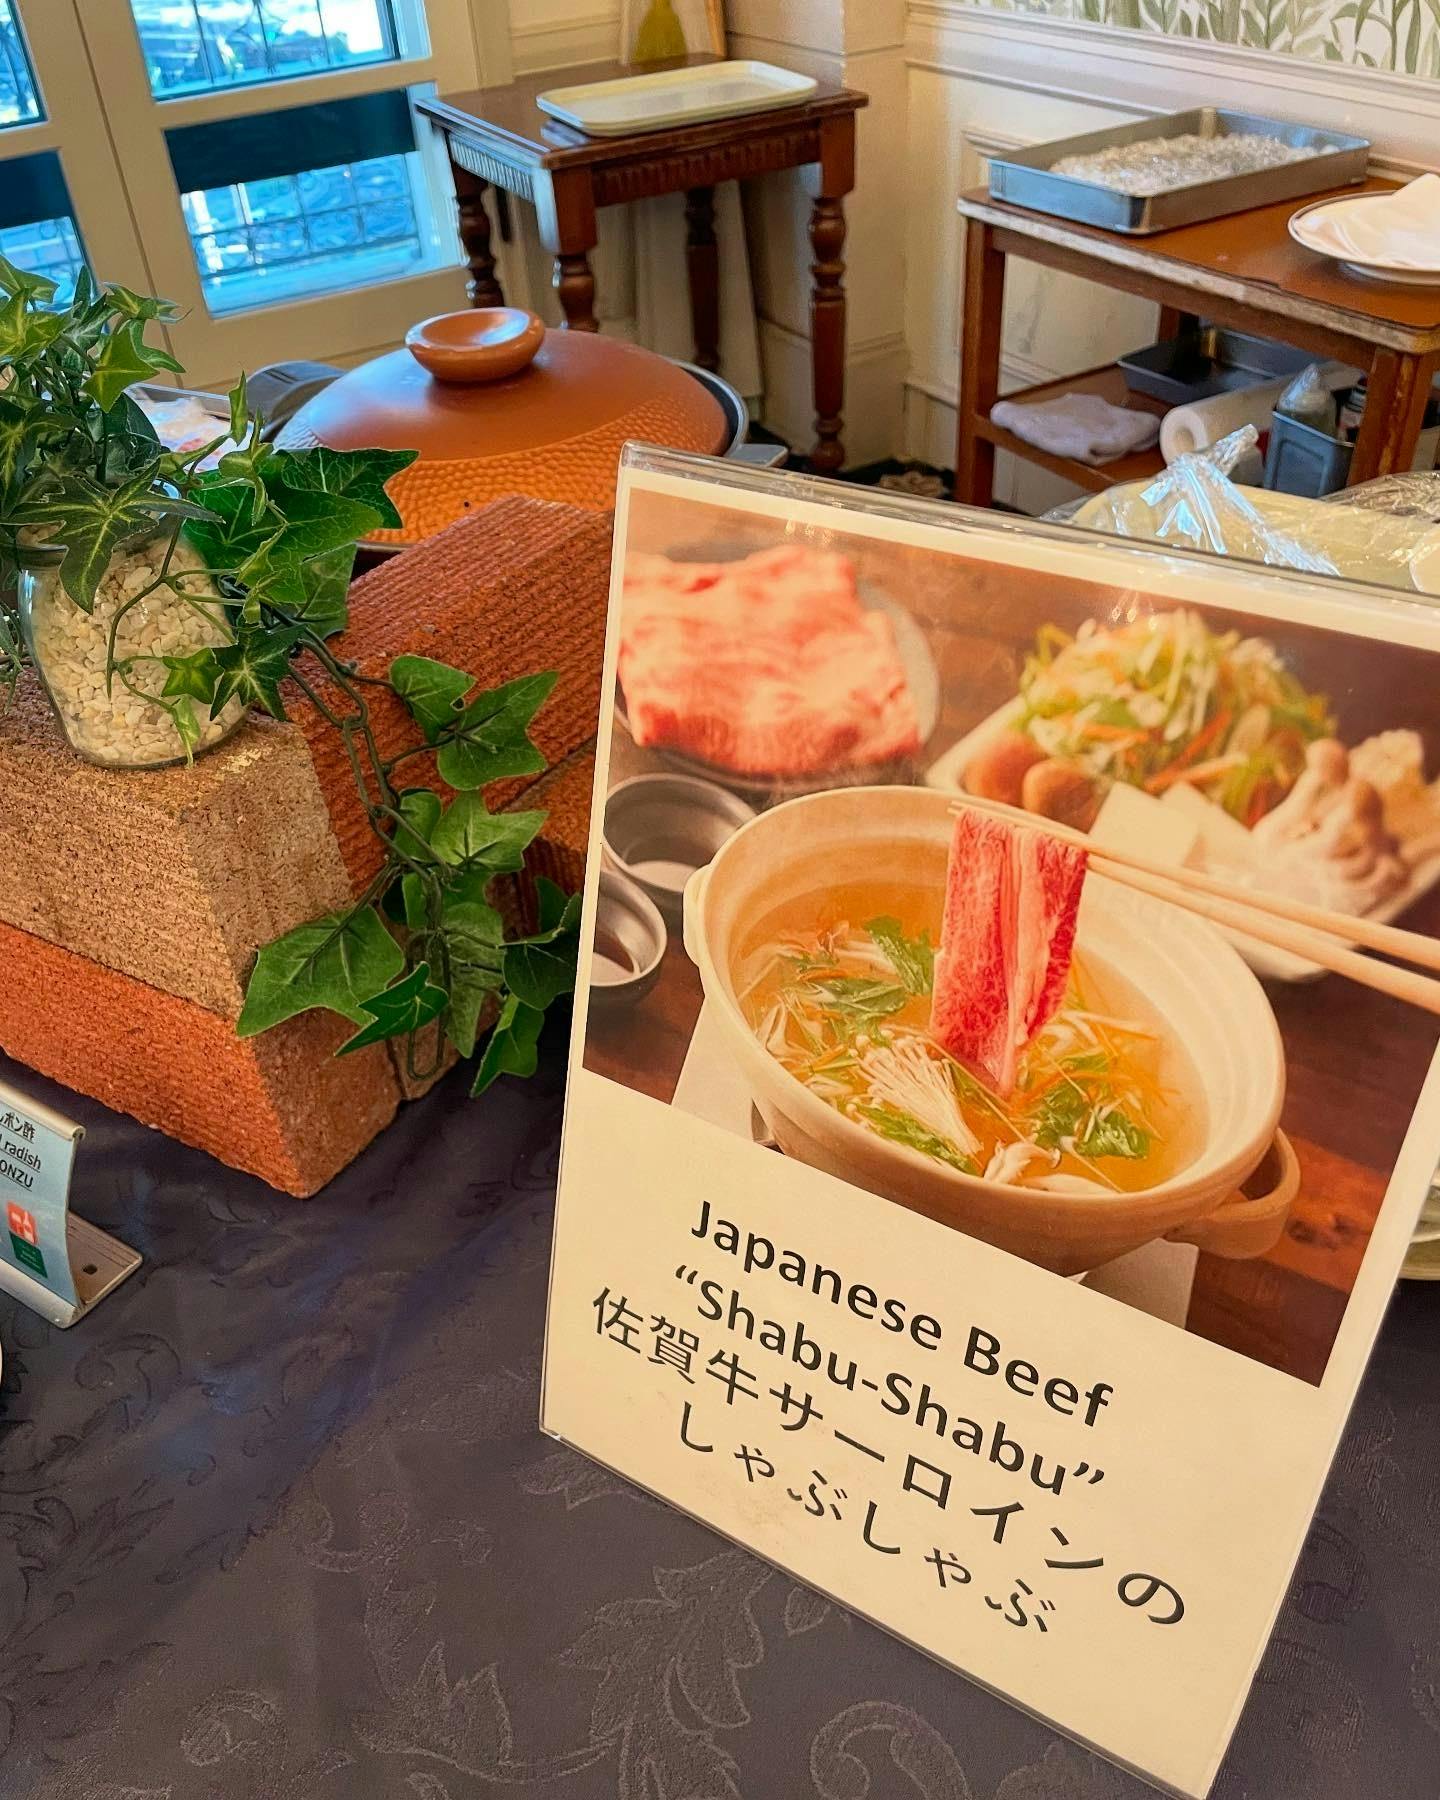 Japanese Beef
“Shabu-Shabu”
佐賀牛サーロインの
しゃぶしゃぶ
ポン酢
radish
ONZU